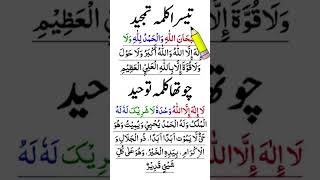 تیسرا کلمہ تمجید
سُبْحَانَ اللّٰهِ وَالْحَمْدُ لِلّٰهِ وَلَا
اِلٰهَ اِلَّا اللّٰهُ وَاللّٰهُ اَكْبَرُ وَلَا حَوْلَ
وَلَا قُوَّةَ اِلَّا بِاللّٰهِ الْعَلِيِّ الْعَظِيْمِ
چوتھا کلمہ توحید
لَا اِلٰهَ اِلَّا اللّٰهُ وَحْدَهٗ لَا شَرِيْكَ لَهٗ لَهُ
الْمُلْكُ وَلَهُ الْحَمْدُ يُحْيِيْ وَيُمِيْتُ وَهُوَ
حَيٌّ لَّا يَمُوْتُ اَبَدًا اَبَدًا ذُو الْجَلَالِ وَ
الْاِكْرَامِ بِيَدِهِ الْخَيْرُ وَهُوَ عَلٰى كُلِّ
شَيْءٍ قَدِيْرٌ